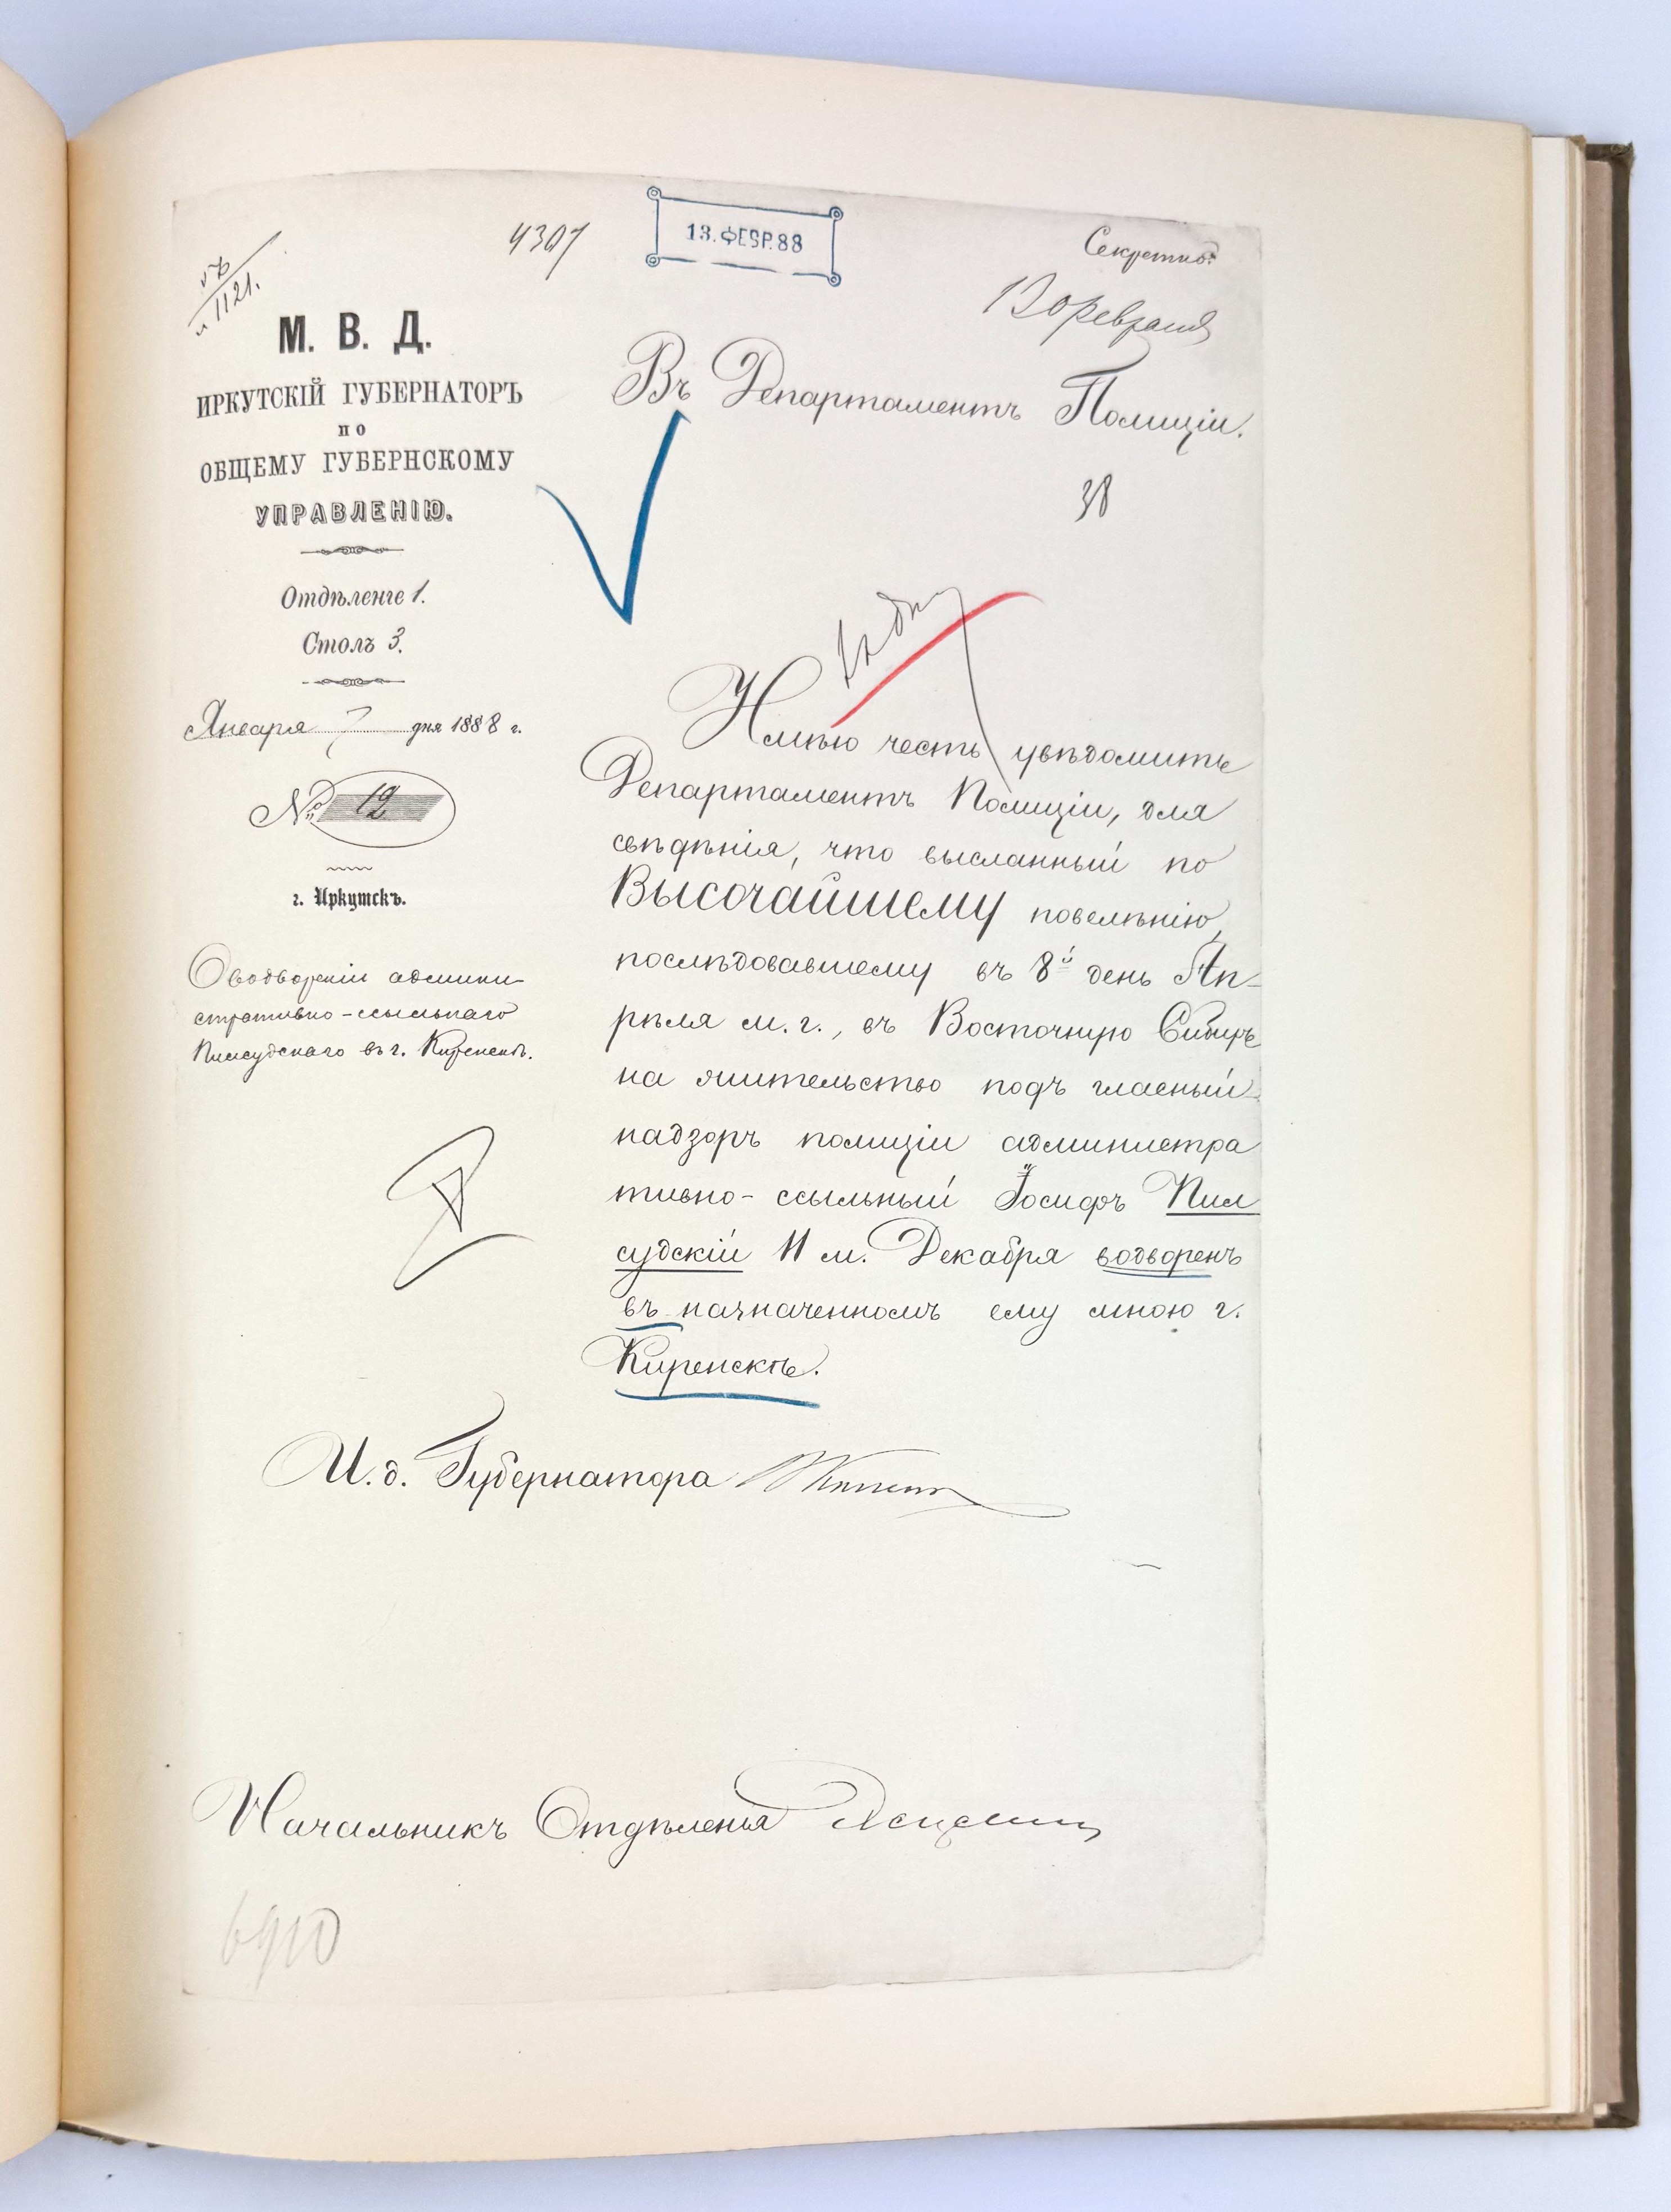 4307
13.ФЕВР.88
Секретно.
13 февраля
1121.
М. В. Д.
ИРКУТСКІЙ ГУБЕРНАТОРЪ
по
ОБЩЕМУ ГУБЕРНСКОМУ
УПРАВЛЕНІЮ.
Отдѣленіе 1.
Столъ 3.
Января 7 дня 1888 г.
№ 12
г. Иркутскъ.
О водвореніи админи-
стративно-ссыльнаго
Пилсудскаго въ г. Киренскѣ.
Въ Департаментъ Полиціи.
38
Имѣю честь увѣдомить
Департаментъ Полиціи, для
свѣдѣнія, что высланный по
Высочайшему повелѣнію,
послѣдовавшему въ 8й день Ап-
рѣля м. г., въ Восточную Сибирь
на жительство подъ гласный
надзоръ полиціи администра
тивно-ссыльный Іосифъ Пил
судскій 11 м. Декабря водворенъ
въ назначенномъ ему мною г.
Киренскѣ.
И. д. Губернатора
Начальникъ Отдѣленія
6910